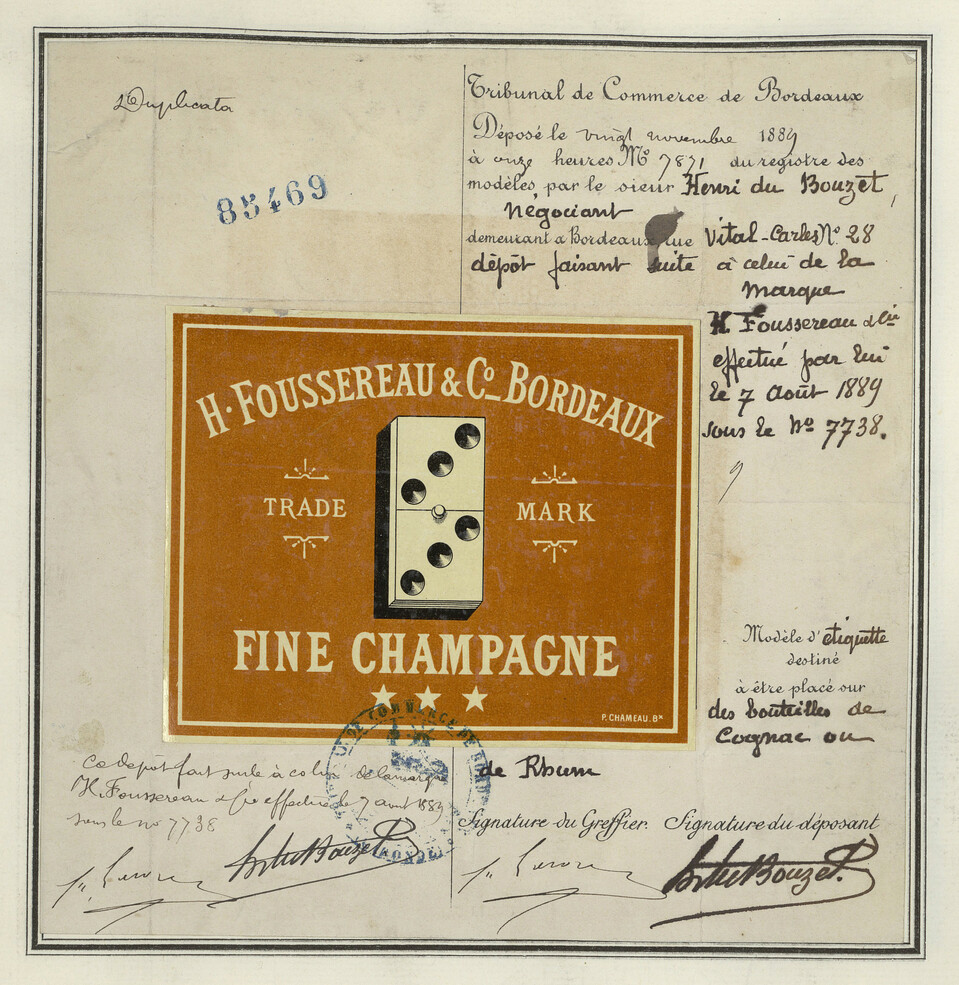 Duplicata
85469
Tribunal de Commerce de Bordeaux
Déposé le vingt novembre 1889
à onze heures N° 7871 du registre des
modèles, par le sieur Henri du Bouzet,
négociant
demeurant a Bordeaux rue Vital-Carles N° 28
dépôt faisant suite à celui de la
marque
H. Foussereau & Cie
effectué par lui
le 7 Août 1889
sous le No 7738.
H. FOUSSEREAU & Co BORDEAUX
TRADE MARK
FINE CHAMPAGNE
P. CHAMEAU. Bx
Modèle d'étiquette
destiné
à être placé sur
des bouteilles de
Cognac ou
de Rhum
Ce dépôt fait suite à celui de la marque
H. Foussereau & Cie effectué le 7 aout 1889
sous le no 7738
COMMERCE DE
Signature du Greffier. Signature du déposant
du Bouzet
du Bouzet